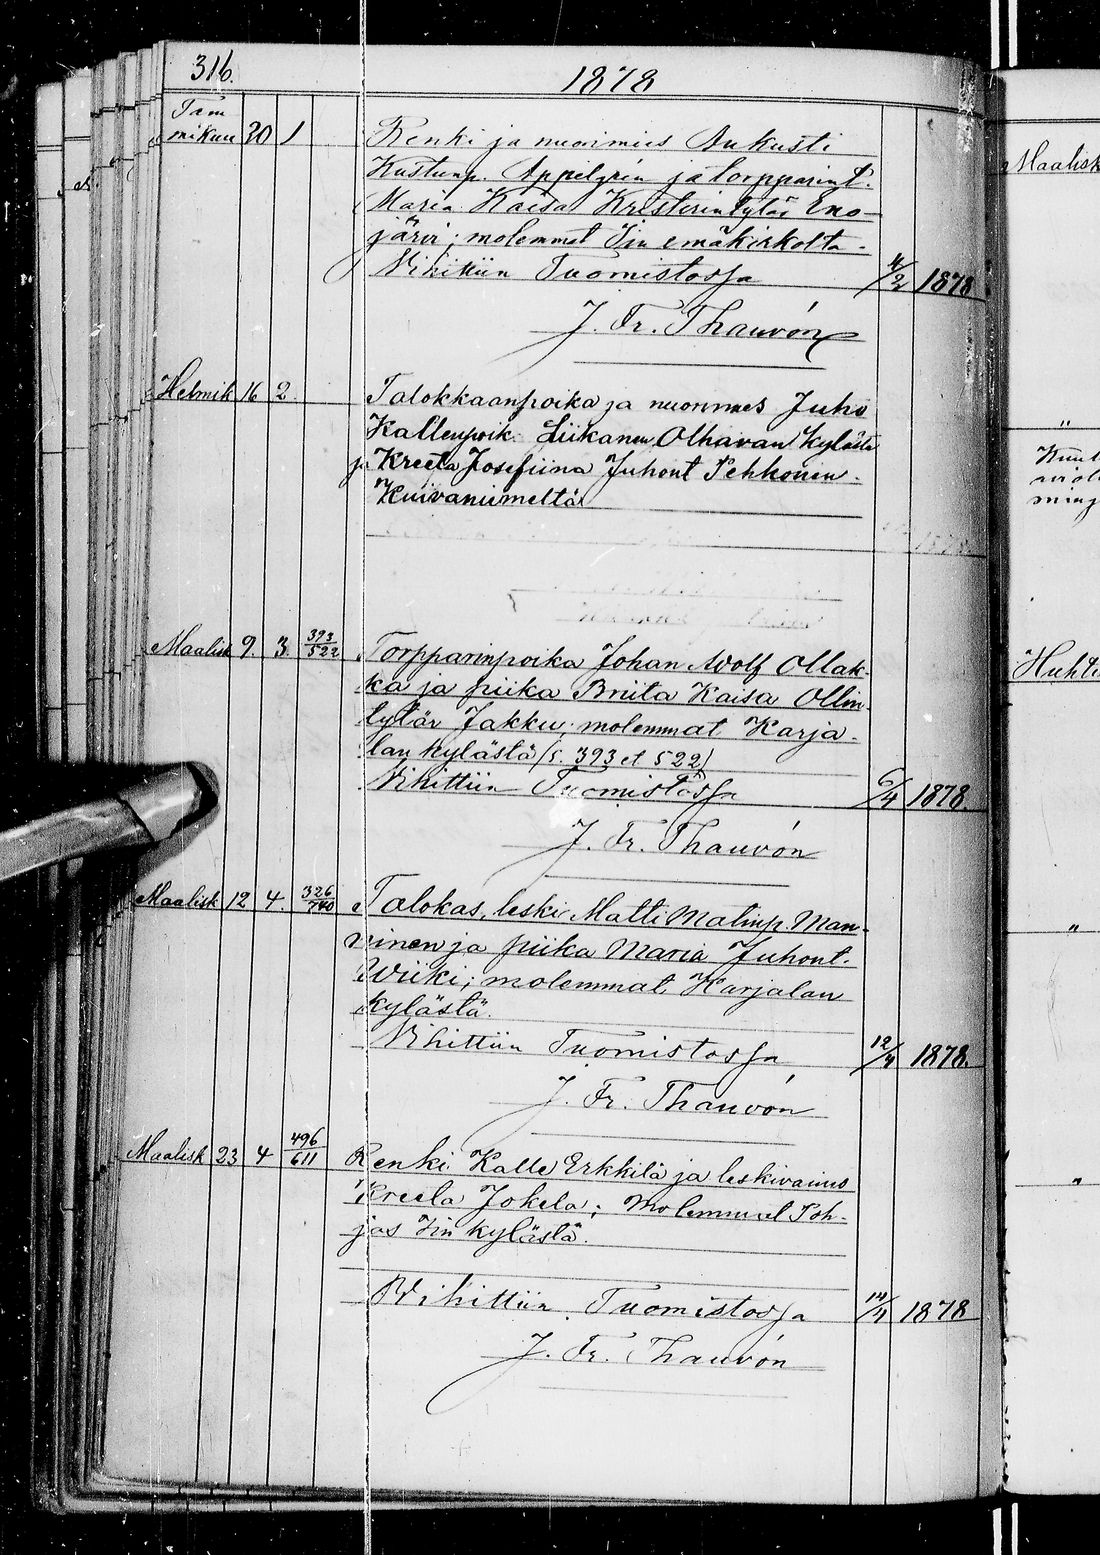 316.
1878
Tam
mikuu 30 1 Renki ja nuorimies Aukusti
Kustunp. Appelgrén ja torpparint.
Maria Kaisa Kristerintytär Eno-
järvi; molemmat Iin emäkirkolta.
Vihittiin Tuomistossa 4/2 1878
J. Fr. Thauvón
Helmik 16 2. Talokkaanpoika ja nuorimies Juho
Kallenpoik. Liikanen Olhavan kylästä
ja Kreeta Josefiina Juhont Pehkonen
Kuivaniemeltä
Maalisk 9. 3. 393/522 Torpparinpoika Johan Adolf Ollak-
ka ja piika Briita Kaisa Ollin-
tytär Jakku; molemmat Karja-
lan kylästä (s. 393 et 522)
Vihittiin Tuomistossa 6/4 1878.
J. Fr. Thauvón
Maalisk 12 4. 326/740 Talokas, leski Matti Matinp. Man-
ninen ja piika Maria Juhont.
Wiiki; molemmat Karjalan
kylästä.
Vihittiin Tuomistossa 12/4 1878.
J. Fr. Thauvón
Maalisk 23 4 496/611 Renki Kalle Erkkilä ja leskivaimo
Kreeta Jokela; Molemmat Poh-
jas Iin kylästä.
Vihittiin Tuomistossa 14/4 1878
J. Fr. Thauvón
Maalisk
"
Huhti
"
"